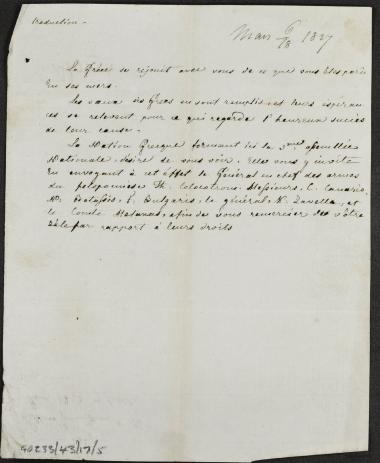 traduction.
Mars 6/18 1827
La Grèce se rejouit avec vous de ce que vous êtes parû
en ses mers.
Les vœux des Grecs en sont remplis, et leurs espéran
ces se relevent pour ce qui regarde l'heureux succès
de leur cause.
La Nation Grecque formant ici la 3me assemblée
Nationale, désire de vous voir. Elle vous y invite
en envoyant à cet effet le Général en chef des armes
du peloponnese Th. Colocotroni. Messieurs, C. Canaris,
Bulgaris, le général, N. Zavella, et
le Comte Metaxas, afin de vous remercier de vôtre
zèle par rapport à leurs droits
40233/43/17/5